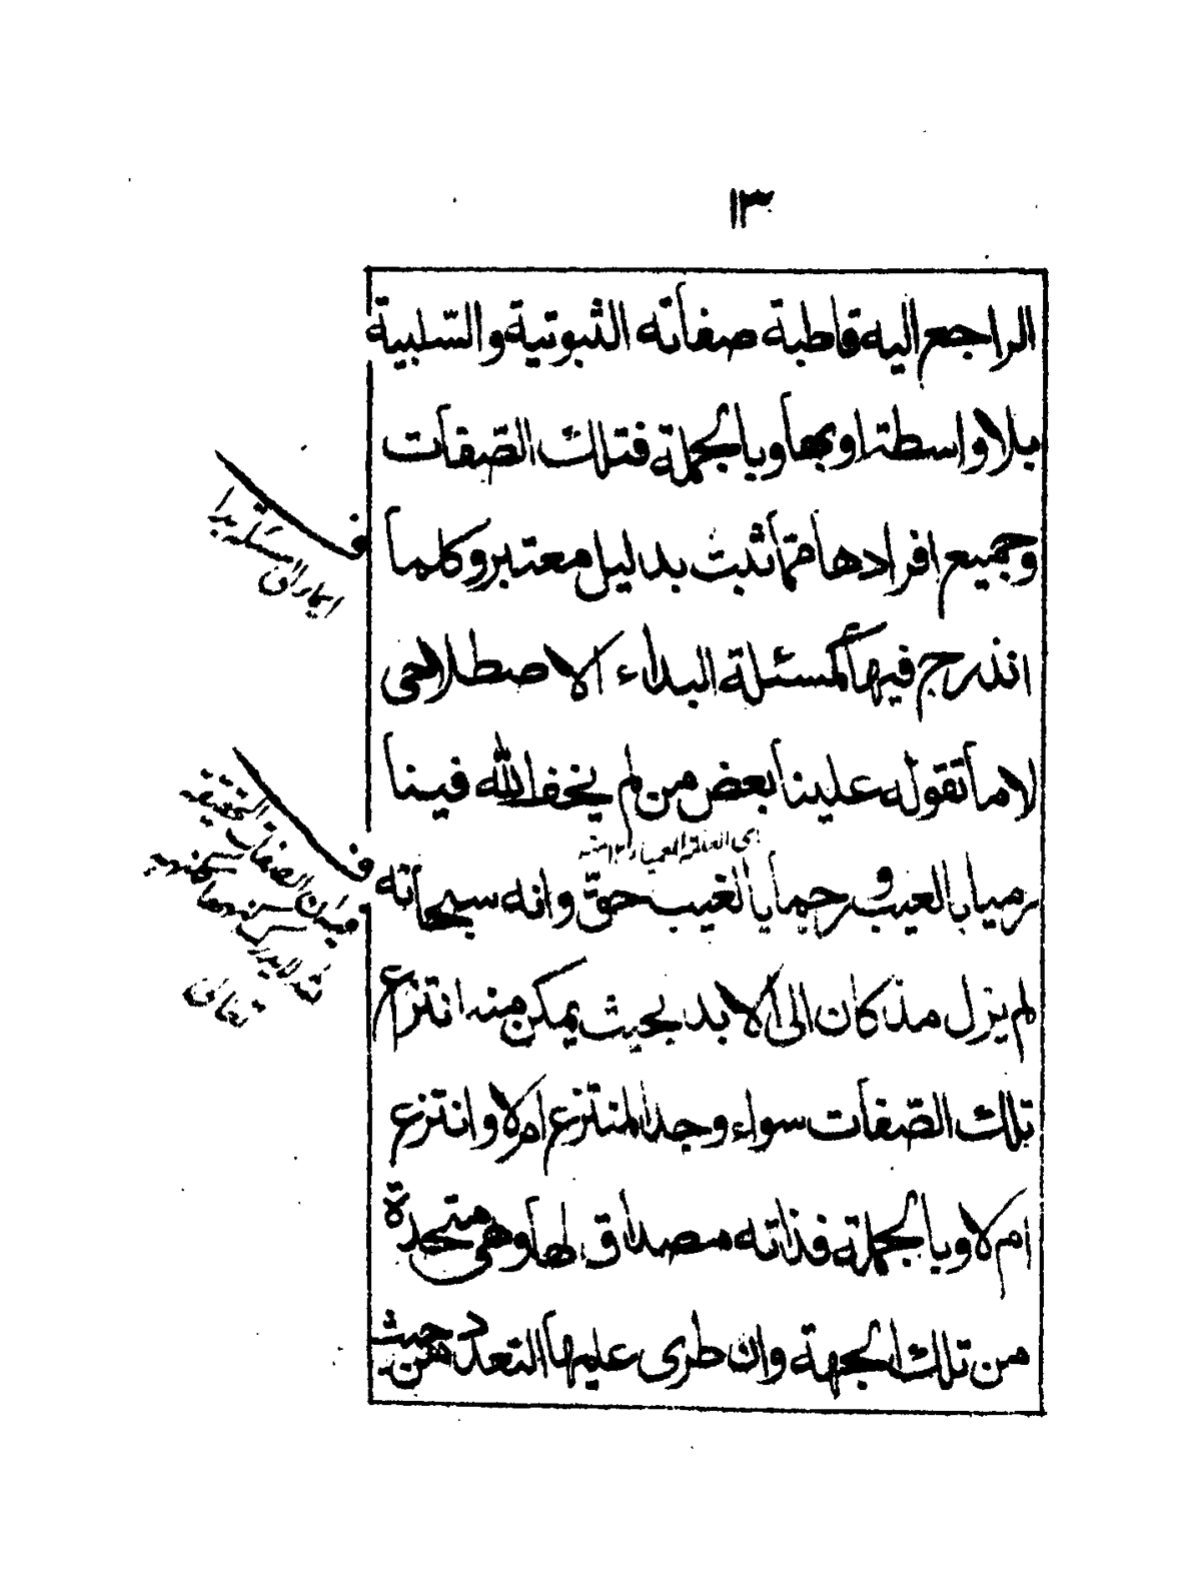 ١٣
الراجع اليه قاطبة صفاته الثبوتية والسّلبية
بلا واسطة او بها وبالجملة فتلك الصّفات
وجميع افرادها ممّا ثبت بدليل معتبر وكلما
اندرج فيها كمسئلة البداء الاصطلاحى
لا ما تقوله علينا بعض من لم يخف الله فينا
رميا بالعيب ورجما بالغيب حقّ وانه سبحانه
لم يزل مذ كان الى الابد بحيث يمكن منه انتزاع
تلك الصّفات سواء وجد المنتزع ام لا وانتزع
ام لا وبالجملة فذاته مصداق لها وهى متحدة
من تلك الجهة وان طرى عليها التعدد من حيث
ف
ايماء الى مسئلة بدا
ف
وبيان الصفات الحقيقية
تعالى